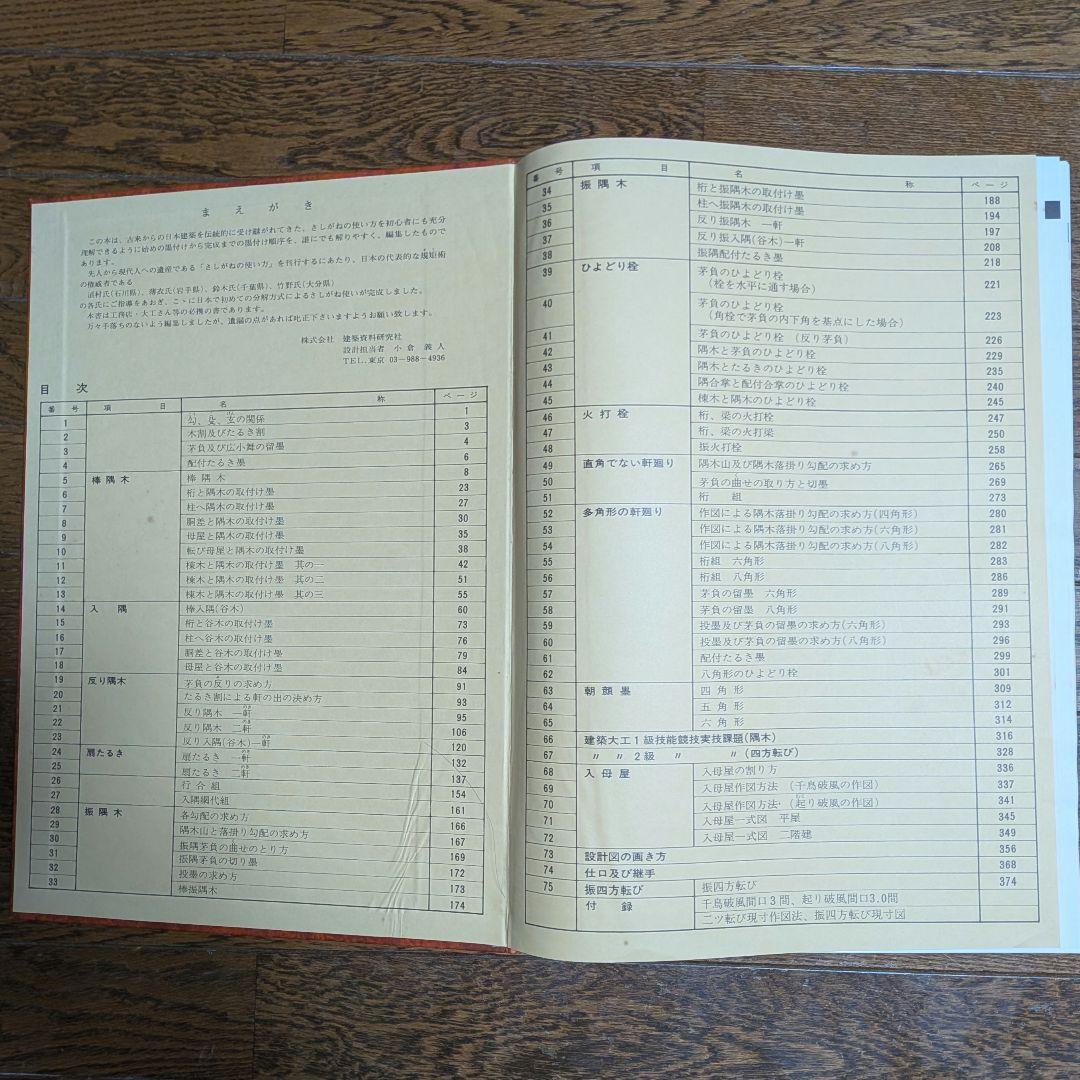 まえがき
この本は、古来からの日本建築を伝統的に受け継がれてきた、さしがねの使い方を初心者にも充分
理解できるように始めの墨付けから完成までの墨付け順序を、誰にでも解りやすく、編集したもので
あります。
先人から現代人への遺産である「さしがねの使い方」を刊行するにあたり、日本の代表的な規矩術
の権威者である
須村氏(石川県)、薄衣氏(岩手県)、鈴木氏(千葉県)、竹野氏(大分県)
の各氏にご指導をあおぎ、こゝに日本で初めての分解方式によるさしがね使いが完成しました。
本書は工務店・大工さん等の必携の書であります。
万々手落ちのないよう編集しましたが、遺漏の点があれば叱正下さいますようお願い致します。
株式会社 建築資料研究社
設計担当者 小倉義人
TEL.東京 03-988-4936
目 次
番 号 項 目 名 称 ページ
1 勾、殳、玄の関係 1
2 木割及びたるき割 3
3 茅負及び広小舞の留墨 4
4 配付たるき墨 6
5 棒隅木 棒隅木 8
6 桁と隅木の取付け墨 23
7 柱へ隅木の取付け墨 27
8 胴差と隅木の取付け墨 30
9 母屋と隅木の取付け墨 35
10 転び母屋と隅木の取付け墨 38
11 棟木と隅木の取付け墨 其の一 42
12 棟木と隅木の取付け墨 其の二 51
13 棟木と隅木の取付け墨 其の三 55
14 入 隅 棒入隅(谷木) 60
15 桁と谷木の取付け墨 73
16 柱へ谷木の取付け墨 76
17 胴差と谷木の取付け墨 79
18 母屋と谷木の取付け墨 84
19 反り隅木 茅負の反りの求め方 91
20 たるき割による軒の出の決め方 93
21 反り隅木 一軒 95
22 反り隅木 二軒 106
23 反り入隅(谷木)一軒 120
24 扇たるき 扇たるき 一軒 132
25 扇たるき 二軒 137
26 行合組 154
27 入隅網代組 161
28 振隅木 各勾配の求め方 166
29 隅木山と落掛り勾配の求め方 167
30 振隅茅負の曲せのとり方 169
31 振隅茅負の切り墨 172
32 投墨の求め方 173
33 棒振隅木 174
番 号 項 目 名 称 ページ
34 振隅木 桁と振隅木の取付け墨 188
35 柱へ振隅木の取付け墨 194
36 反り振隅木 一軒 197
37 反り振入隅(谷木)一軒 208
38 振隅配付たるき墨 218
39 ひよどり栓 茅負のひよどり栓 221
(栓を水平に通す場合)
40 茅負のひよどり栓 223
(角栓で茅負の内下角を基点にした場合)
41 茅負のひよどり栓 (反り茅負) 226
42 隅木と茅負のひよどり栓 229
43 隅木とたるきのひよどり栓 235
44 隅合掌と配付合掌のひよどり栓 240
45 棟木と隅木のひよどり栓 245
46 火打栓 桁、梁の火打栓 247
47 桁、梁の火打梁 250
48 振火打栓 258
49 直角でない軒廻り 隅木山及び隅木落掛り勾配の求め方 265
50 茅負の曲せの取り方と切墨 269
51 桁 組 273
52 多角形の軒廻り 作図による隅木落掛り勾配の求め方(四角形) 280
53 作図による隅木落掛り勾配の求め方(六角形) 281
54 作図による隅木落掛り勾配の求め方(八角形) 282
55 桁組 六角形 283
56 桁組 八角形 286
57 茅負の留墨 六角形 289
58 茅負の留墨 八角形 291
59 投墨及び茅負の留墨の求め方(六角形) 293
60 投墨及び茅負の留墨の求め方(八角形) 296
61 配付たるき墨 299
62 八角形のひよどり栓 301
63 朝顔墨 四角形 309
64 五角形 312
65 六角形 314
66 建築大工1級技能競技実技課題(隅木) 316
67 〃 〃 2級 〃 〃 (四方転び) 328
68 入母屋 入母屋の割り方 336
69 入母屋作図方法 (千鳥破風の作図) 337
70 入母屋作図方法・(起り破風の作図) 341
71 入母屋一式図 平屋 345
72 入母屋一式図 二階建 349
73 設計図の画き方 356
74 仕口及び継手 368
75 振四方転び 振四方転び 374
付 録 千鳥破風間口3間、起り破風間口3.0間
二ツ転び現寸作図法、振四方転び現寸図